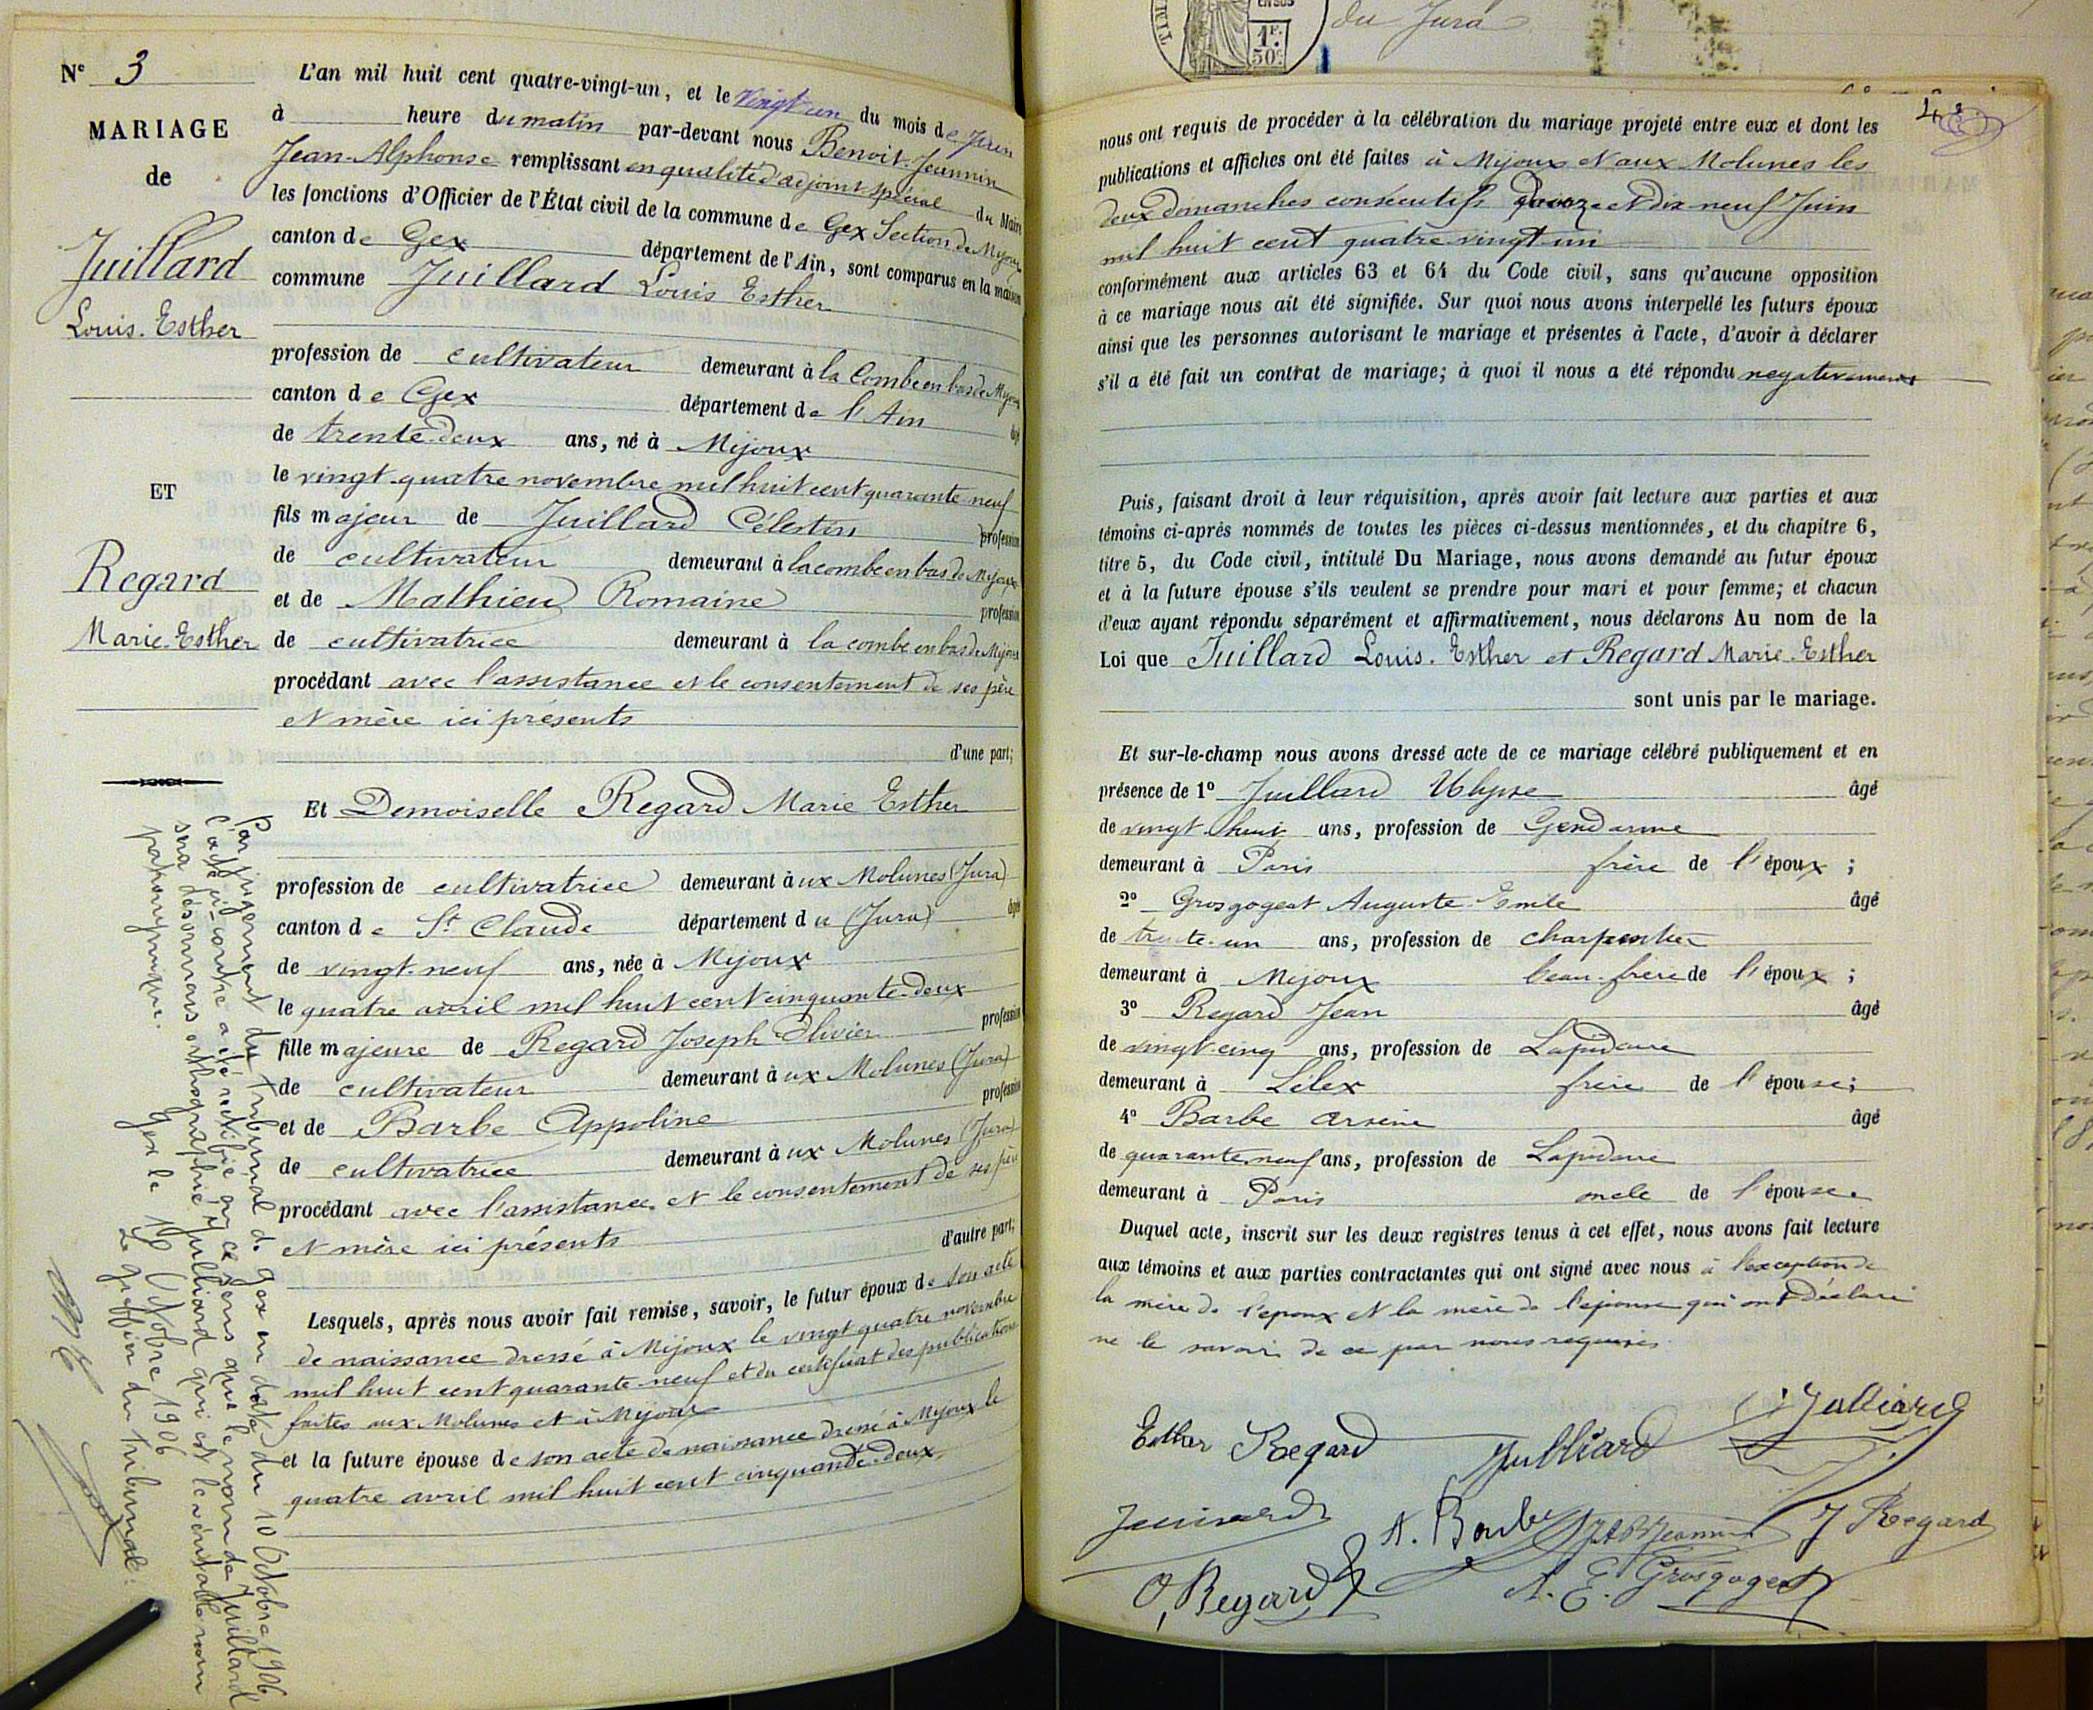 N° 3
MARIAGE
de
Juillard
Louis-Esther
ET
Regard
Marie-Esther
Par jugement du Tribunal de Gex en date du 10 Octobre 1906
l'acte ci-contre a été rectifié en ce sens que le nom de Juillard
sera désormais orthographié Julliard qui est le véritable nom
patronymique. Gex le 16 Octobre 1906
Le greffier du tribunal:
L'an mil huit cent quatre-vingt-un, et le vingt un du mois de Juin
à heure du matin par-devant nous Benoit-Jeannin
Jean-Alphonse remplissant en qualité d'adjoint spécial du Maire
les fonctions d'Officier de l'État civil de la commune de Gex Section de Mijoux
canton de Gex département de l'Ain, sont comparus en la maison
commune Juillard Louis Esther
profession de cultivateur demeurant à la Combe en bas de Mijoux
canton de Gex département de l'Ain âgé
de trente-deux ans, né à Mijoux
le vingt-quatre novembre mil huit cent quarante neuf
fils majeur de Juillard Célestin profession
de cultivateur demeurant à la combe en bas de Mijoux
et de Mathieu Romaine profession
de cultivatrice demeurant à la combe en bas de Mijoux
procédant avec l'assistance et le consentement de ses père
et mère ici présents
d'une part;
Et Demoiselle Regard Marie Esther
profession de cultivatrice demeurant à ux Molunes (Jura)
canton de St Claude département du (Jura) âgée
de vingt-neuf ans, née à Mijoux
le quatre avril mil huit cent cinquante-deux
fille majeure de Regard Joseph Olivier profession
de cultivateur demeurant à ux Molunes (Jura)
et de Barbe Appoline profession
de cultivatrice demeurant à ux Molunes (Jura)
procédant avec l'assistance et le consentement de ses père
et mère ici présents
d'autre part;
Lesquels, après nous avoir fait remise, savoir, le futur époux de son acte
de naissance dressé à Mijoux le vingt quatre novembre
mil huit cent quarante neuf et du certificat des publications
faites aux Molunes et à Mijoux
et la future épouse de son acte de naissance dressé à Mijoux le
quatre avril mil huit cent cinquante-deux
EN SUS
1F.
50c
du Jura
nous ont requis de procéder à la célébration du mariage projeté entre eux et dont les
publications et affiches ont été faites à Mijoux et aux Molunes les
deux dimanches consécutifs douze et dix neuf Juin
mil huit cent quatre-vingt-un
conformément aux articles 63 et 64 du Code civil, sans qu'aucune opposition
à ce mariage nous ait été signifiée. Sur quoi nous avons interpellé les futurs époux
ainsi que les personnes autorisant le mariage et présentes à l'acte, d'avoir à déclarer
s'il a été fait un contrat de mariage; à quoi il nous a été répondu negativement
Puis, faisant droit à leur réquisition, après avoir fait lecture aux parties et aux
témoins ci-après nommés de toutes les pièces ci-dessus mentionnées, et du chapitre 6,
titre 5, du Code civil, intitulé Du Mariage, nous avons demandé au futur époux
et à la future épouse s'ils veulent se prendre pour mari et pour femme; et chacun
d'eux ayant répondu séparément et affirmativement, nous déclarons Au nom de la
Loi que Juillard Louis-Esther et Regard Marie-Esther
sont unis par le mariage.
Et sur-le-champ nous avons dressé acte de ce mariage célébré publiquement et en
présence de 1° Juillard Ulysse âgé
de vingt-huit ans, profession de Gendarme
demeurant à Paris frère de l'époux;
2° Grosgogeat Auguste-Emile âgé
de trente-un ans, profession de charpentier
demeurant à Mijoux beau-frère de l'époux;
3° Regard Jean âgé
de vingt-cinq ans, profession de Lapidaire
demeurant à Lélex frère de l'épouse;
4° Barbe Arsène âgé
de quarante-neuf ans, profession de Lapidaire
demeurant à Paris oncle de l'épouse.
Duquel acte, inscrit sur les deux registres tenus à cet effet, nous avons fait lecture
aux témoins et aux parties contractantes qui ont signé avec nous à l'exception de
la mère de l'époux et la mère de l'épouse qui ont déclaré
ne le savoir de ce par nous requises.
Esther Regard Julliard Julliard
A. Barbe J A B Jeannin J Regard
O, Regard A. E. Grosgogeat